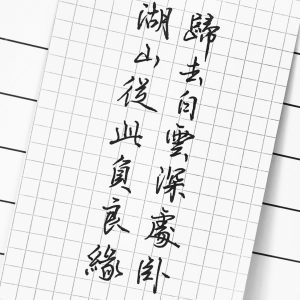 歸去白雲深處臥
湖山從此負良緣